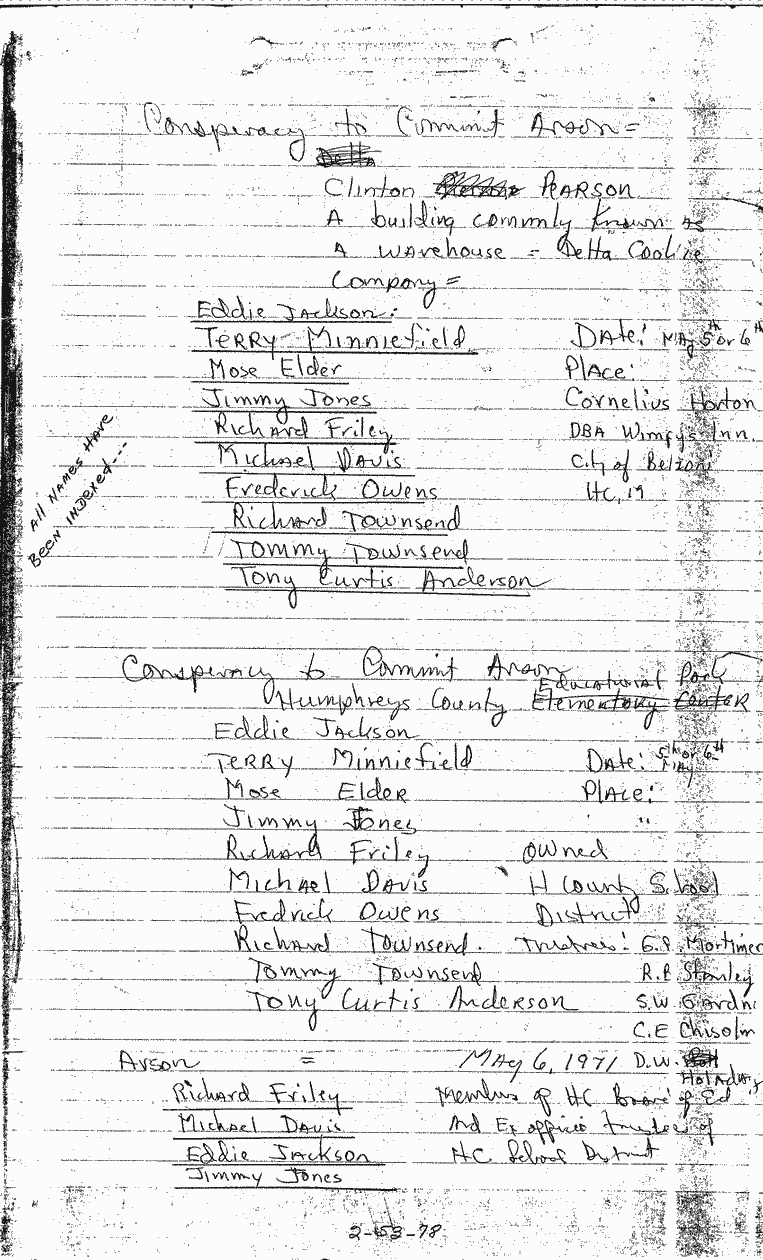 Conspiracy to Commit Arson =
Delta
Clinton PEARSON
A building commnly known as
A WAREHOUSE = Delta Cooline
Company =
Eddie JACKSON:
TERRY Minniefield
DATE: MAy 5th or 6th
Mose Elder
PlAce:
Jimmy Jones
Cornelius Horton
Richard Friley
DBA Wimpys Inn.
Michael DAvis
City of Belzoni
Frederick Owens
HC, 19
Richard Townsend
Tommy Townsend
Tony Curtis Anderson
All NAMES HAVE
BEEN INDEXED---
Conspiracy to Commit Arson
Educational Park
Humphreys County Elementary Center
Eddie JACKSON
TERRY Minniefield
DAte: 5th or 6th
MAy
Mose ElDER
PlAce:
Jimmy Jones
"
Richard Friley
Owned
MichAel DAvis
H County School
Fredrick Owens
District
Richard Townsend.
Trustees: G.P. Mortimer
Tommy Townsend
R.P. Stanley
Tony Curtis Anderson
S.W. Gardn
C.E Chisolm
Arson =
MAy 6, 1971 D.W.
HolAdAy
Richard Friley
Members of HC Board of Ed
Michael Davis
And Ex officio trustees of
Eddie Jackson
H.C. School District
Jimmy Jones
2-53-78